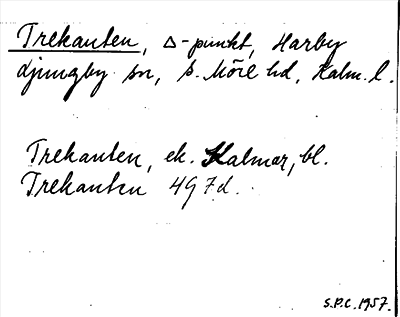 Trekanten, △-punkt, Harby
Ljungby sn, S. Möre hd, Kalm. l.
Trekanten, ek. Kalmar, bl.
Trekanten 4G 7d.
S.P.C. 1957.